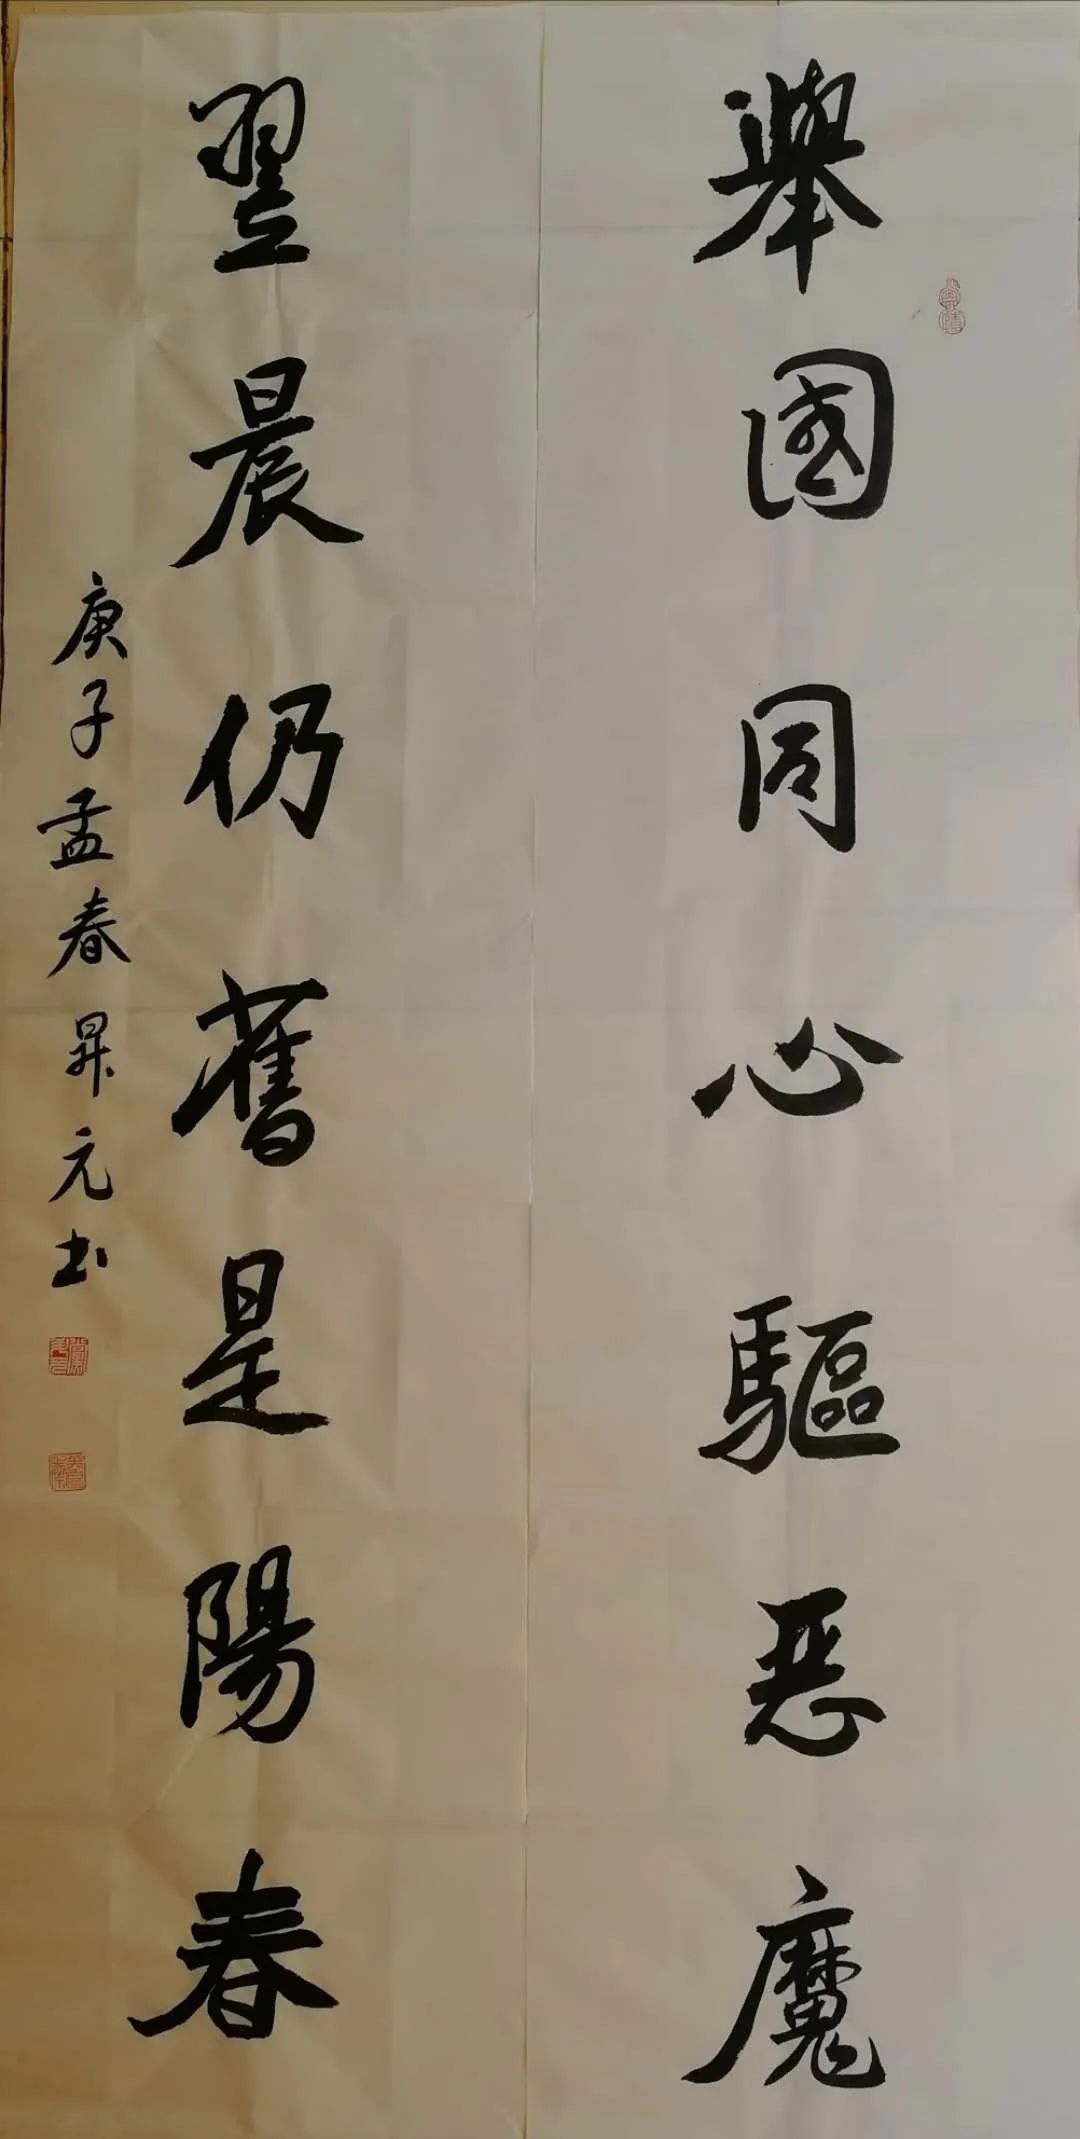 舉國同心驅惡魔
翌晨仍舊是陽春
庚子孟春昇元书